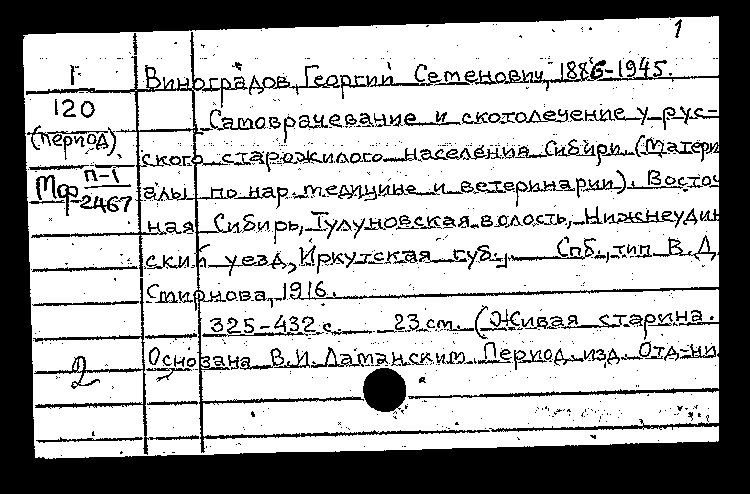 1
Г
120
(период)
Мф п-1
2467
2
Виноградов, Георгий Семенович, 1886-1945.
Самоврачевание и скотолечение у рус-
ского старожилого населения Сибири (Матери
алы по нар. медицине и ветеринарии). Восточ
ная Сибирь, Тулуновская волость, Нижнеудин
ский уезд, Иркутская губ., Спб., тип В. Д.
Смирнова, 1916.
325-432 с. 23 см. (Живая старина.
Основана В.И. Ламанским. Период. изд. Отд-ни